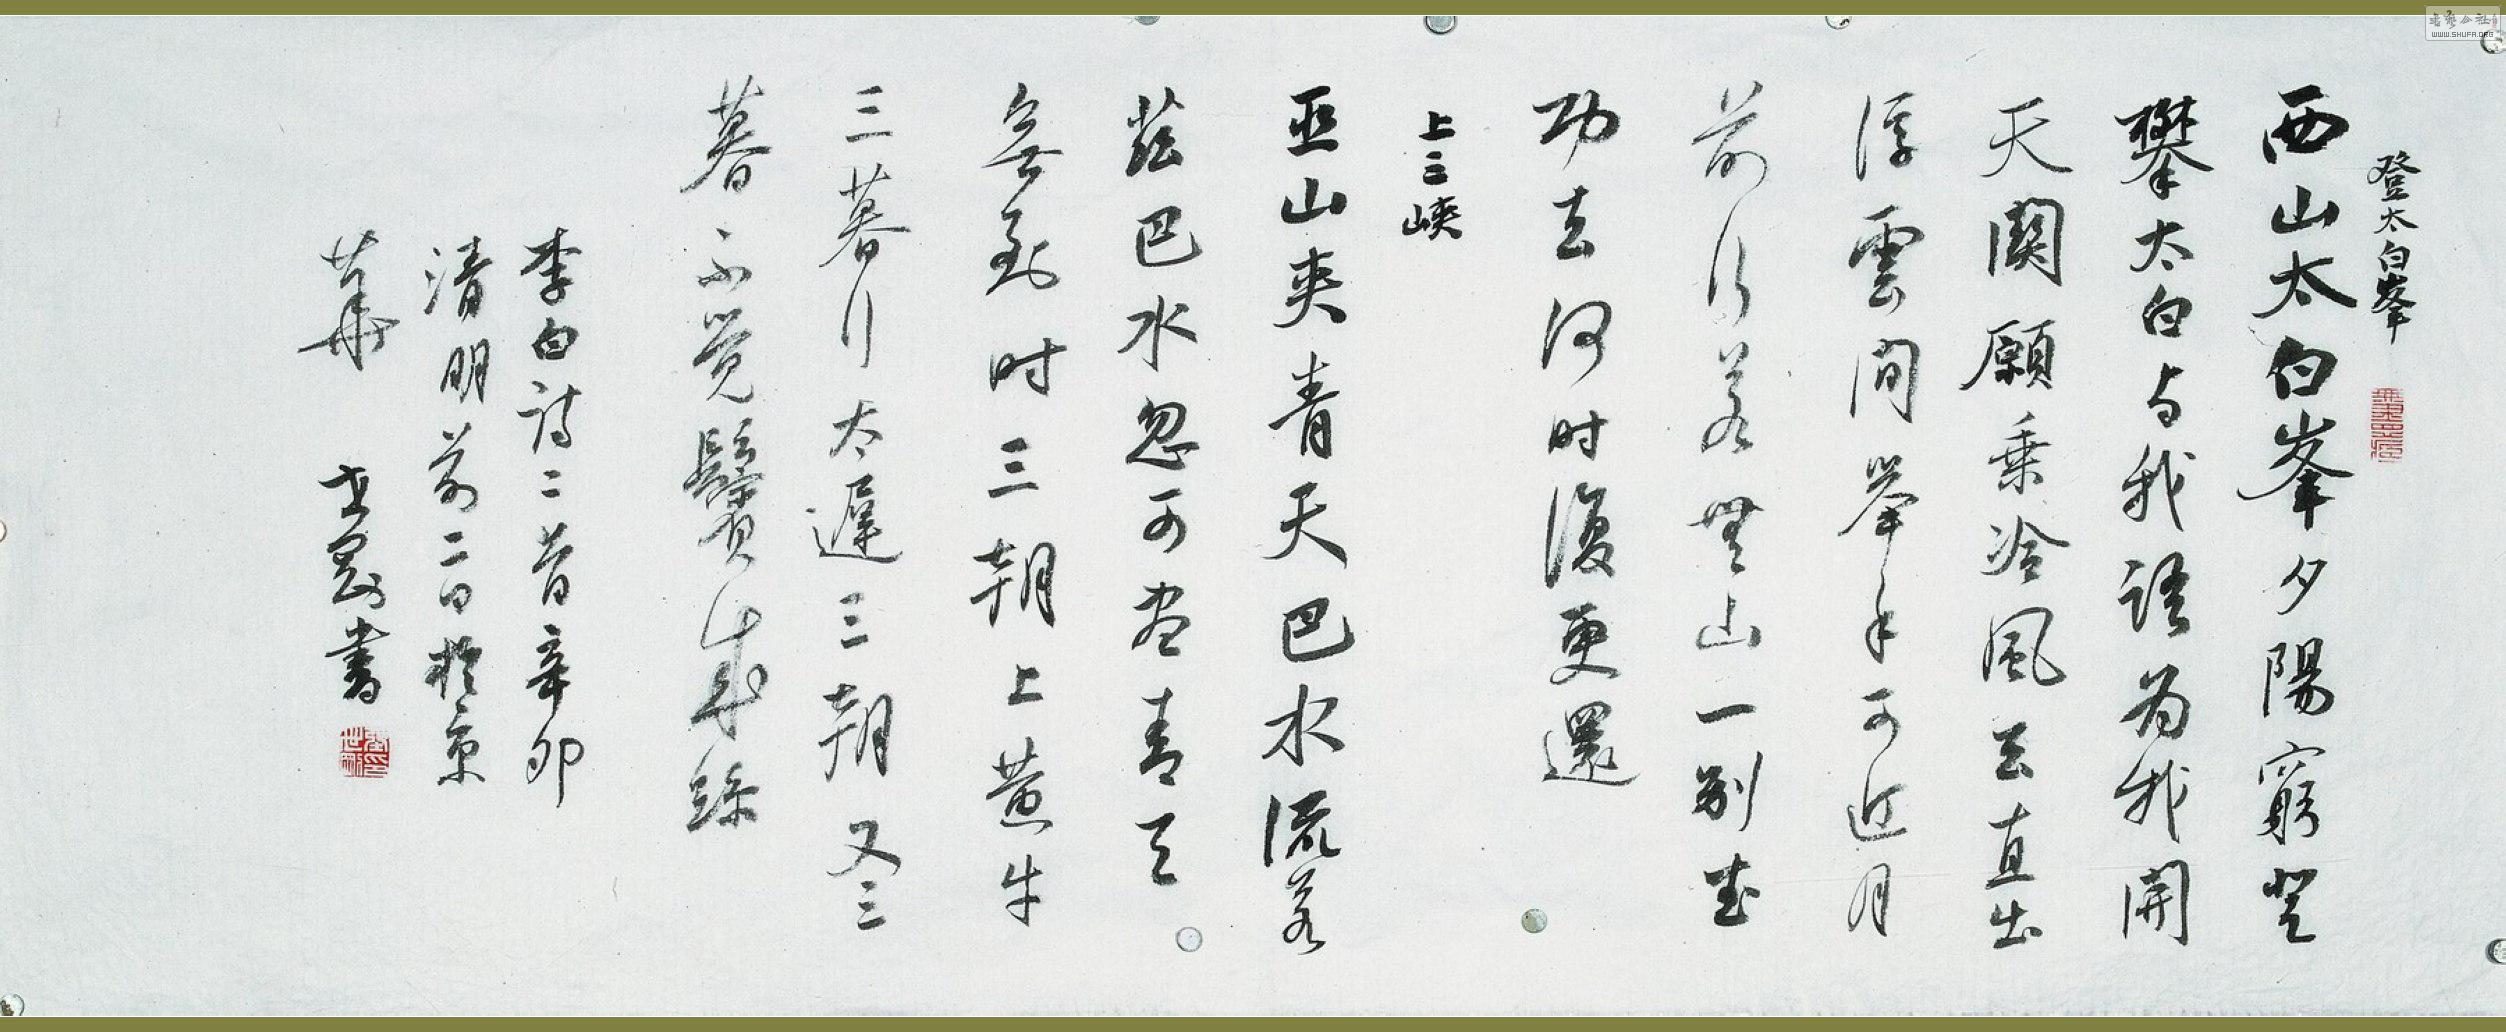 登太白峯
西山太白峯夕陽窮登
攀太白与我語为我開
天関願乗冷風去直出
浮雲间举手可近月
前行若無山一别武
功去何时復更還
上三峽
巫山夾青天巴水流若
兹巴水忽可尽青天
無到时三朝上黄牛
三暮行太遲三朝又三
暮不觉鬢成絲
李白诗二首辛卯
清明前二日於京
華 世
書
WWW.SHUFA.ORG